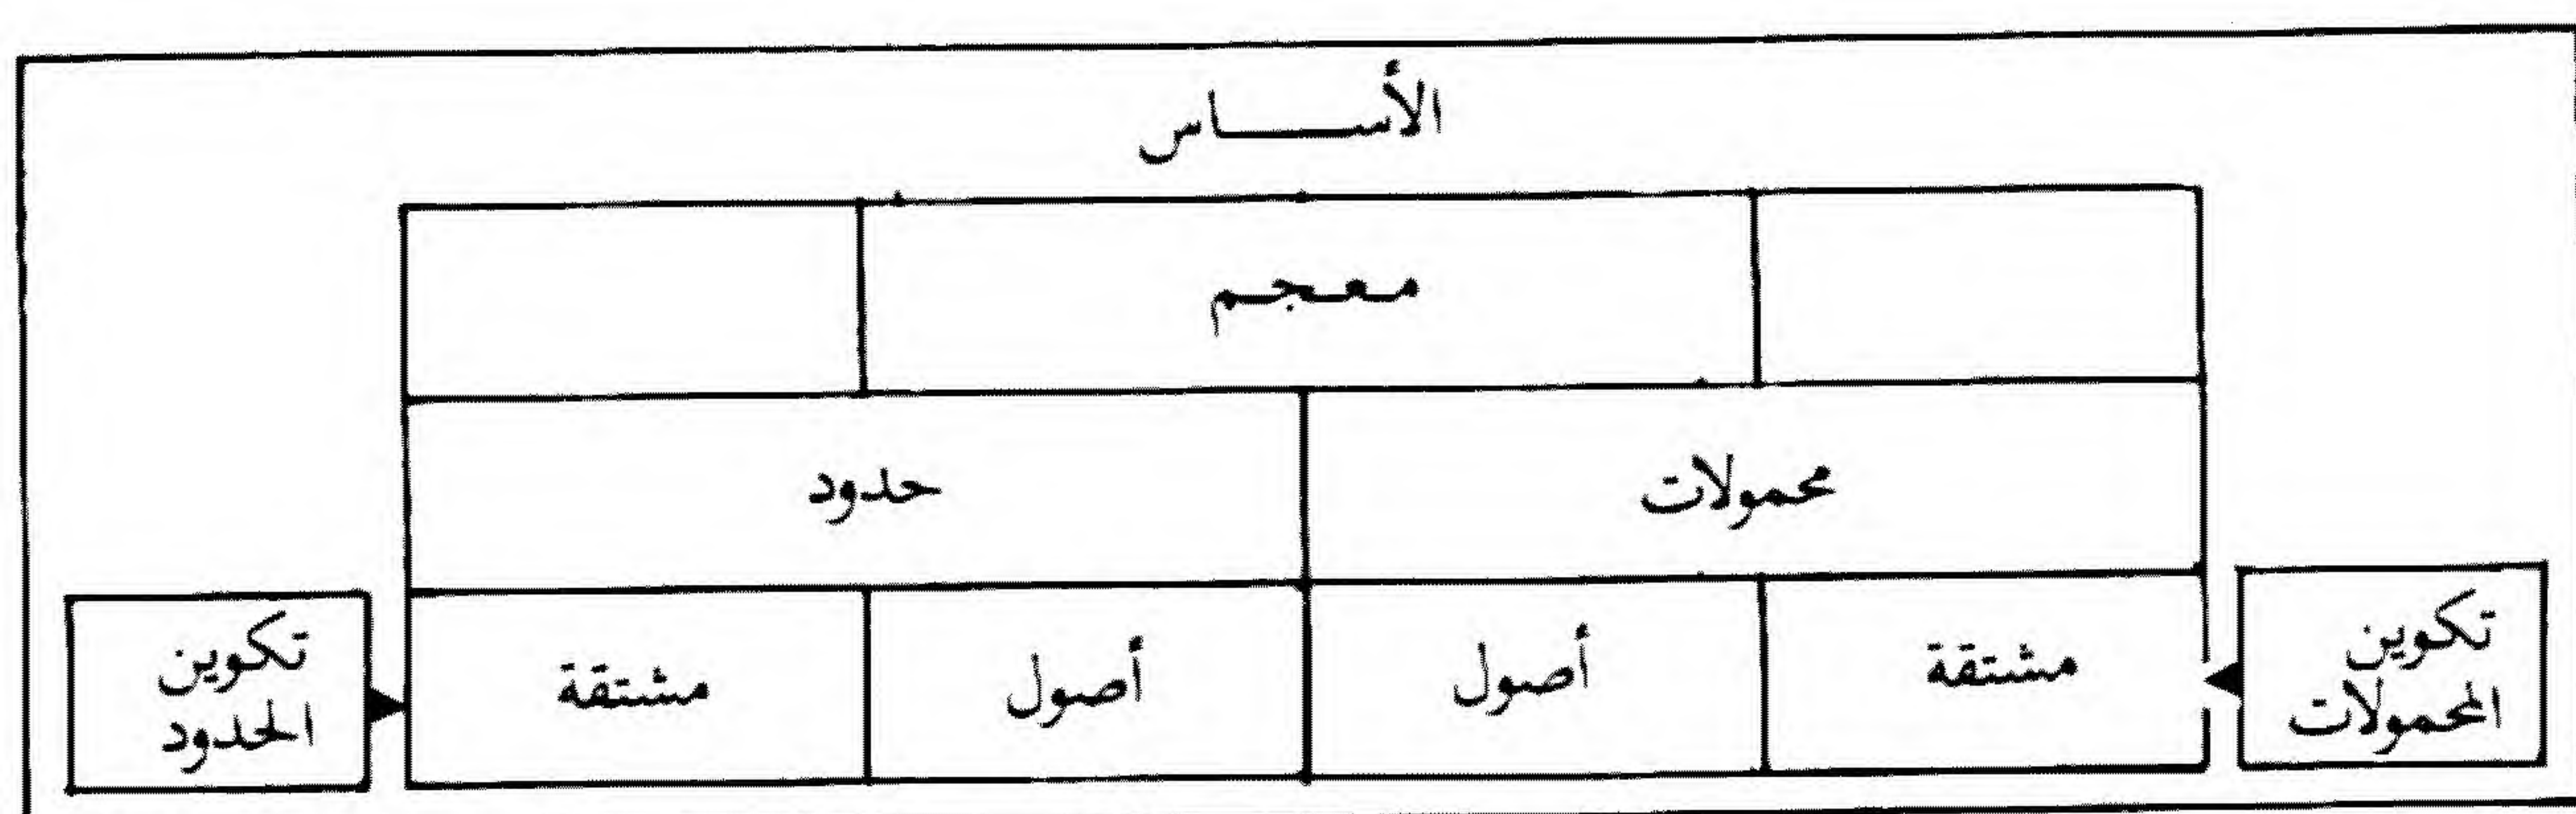 الأساس
معجم
محمولات
حدود
تكوين
المحمولات
مشتقة
أصول
أصول
مشتقة
تكوين
الحدود